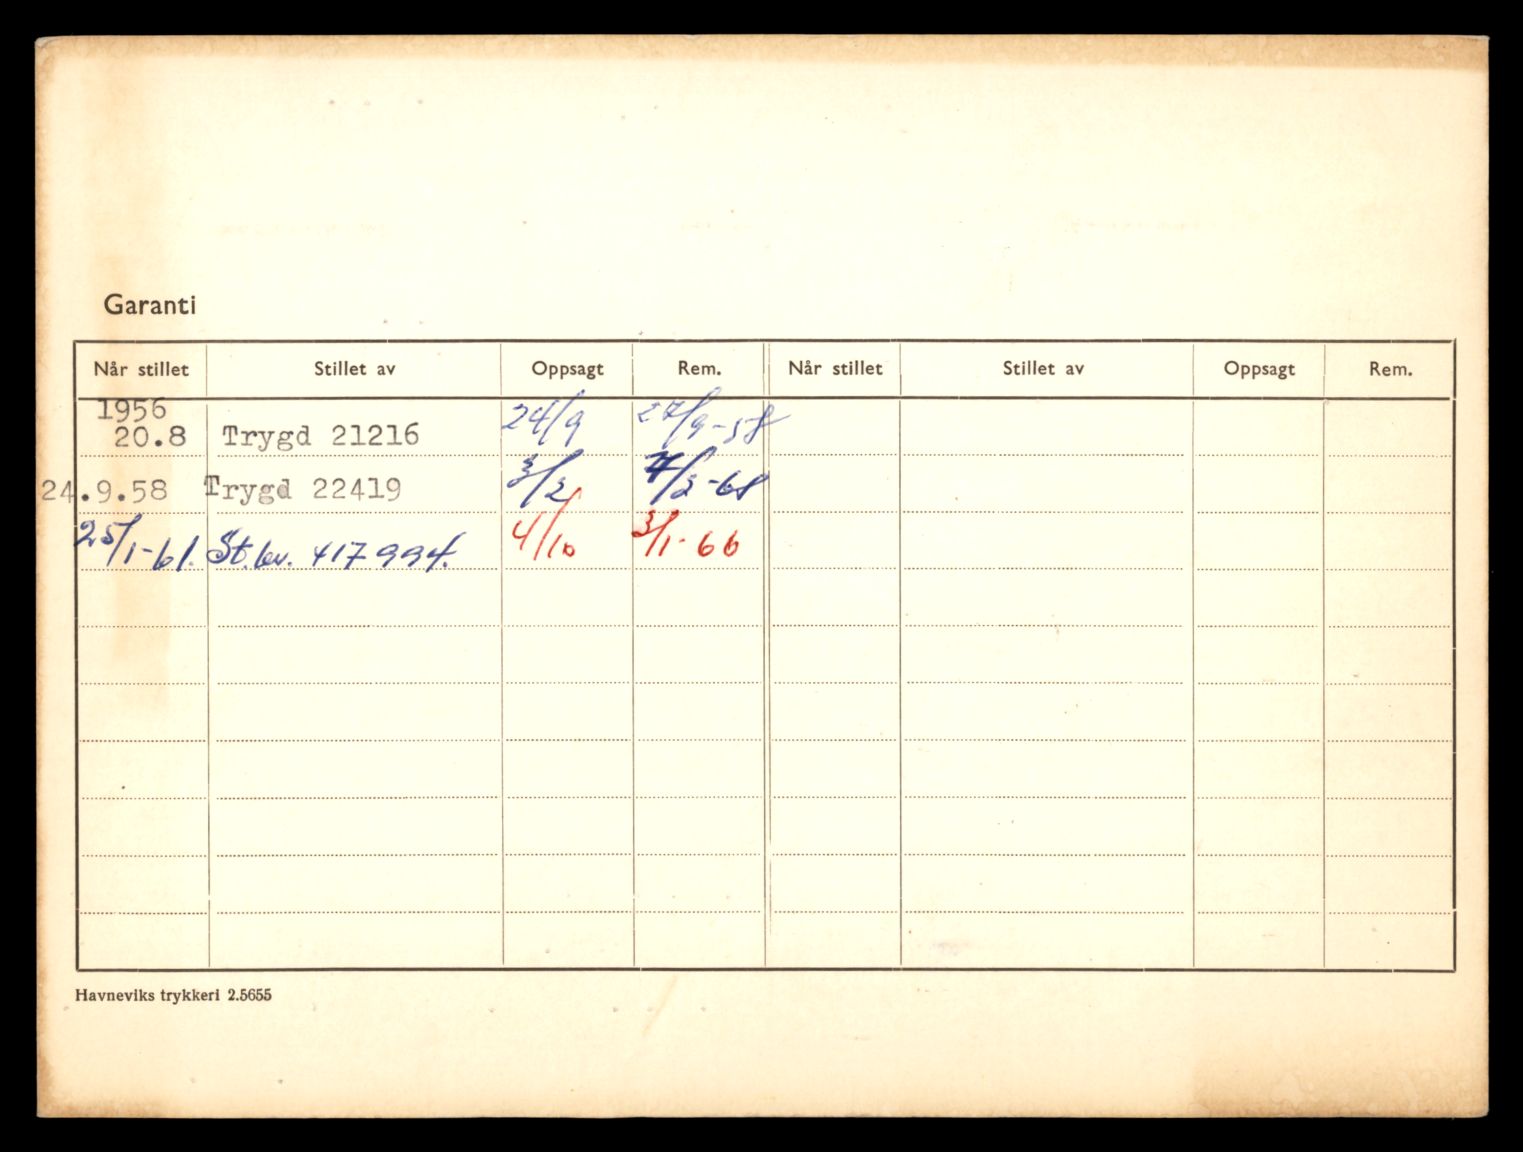 Garanti
Når stillet Stillet av Oppsagt Rem. Når stillet Stillet av Oppsagt Rem.
1956
20.8 Trygd 21216 24/9 27/9-58
24.9.58 Trygd 22419 3/2 7/2-61
25/1-61. St.bev. 417994. 4/10 3/1-66
Havneviks trykkeri 2.5655